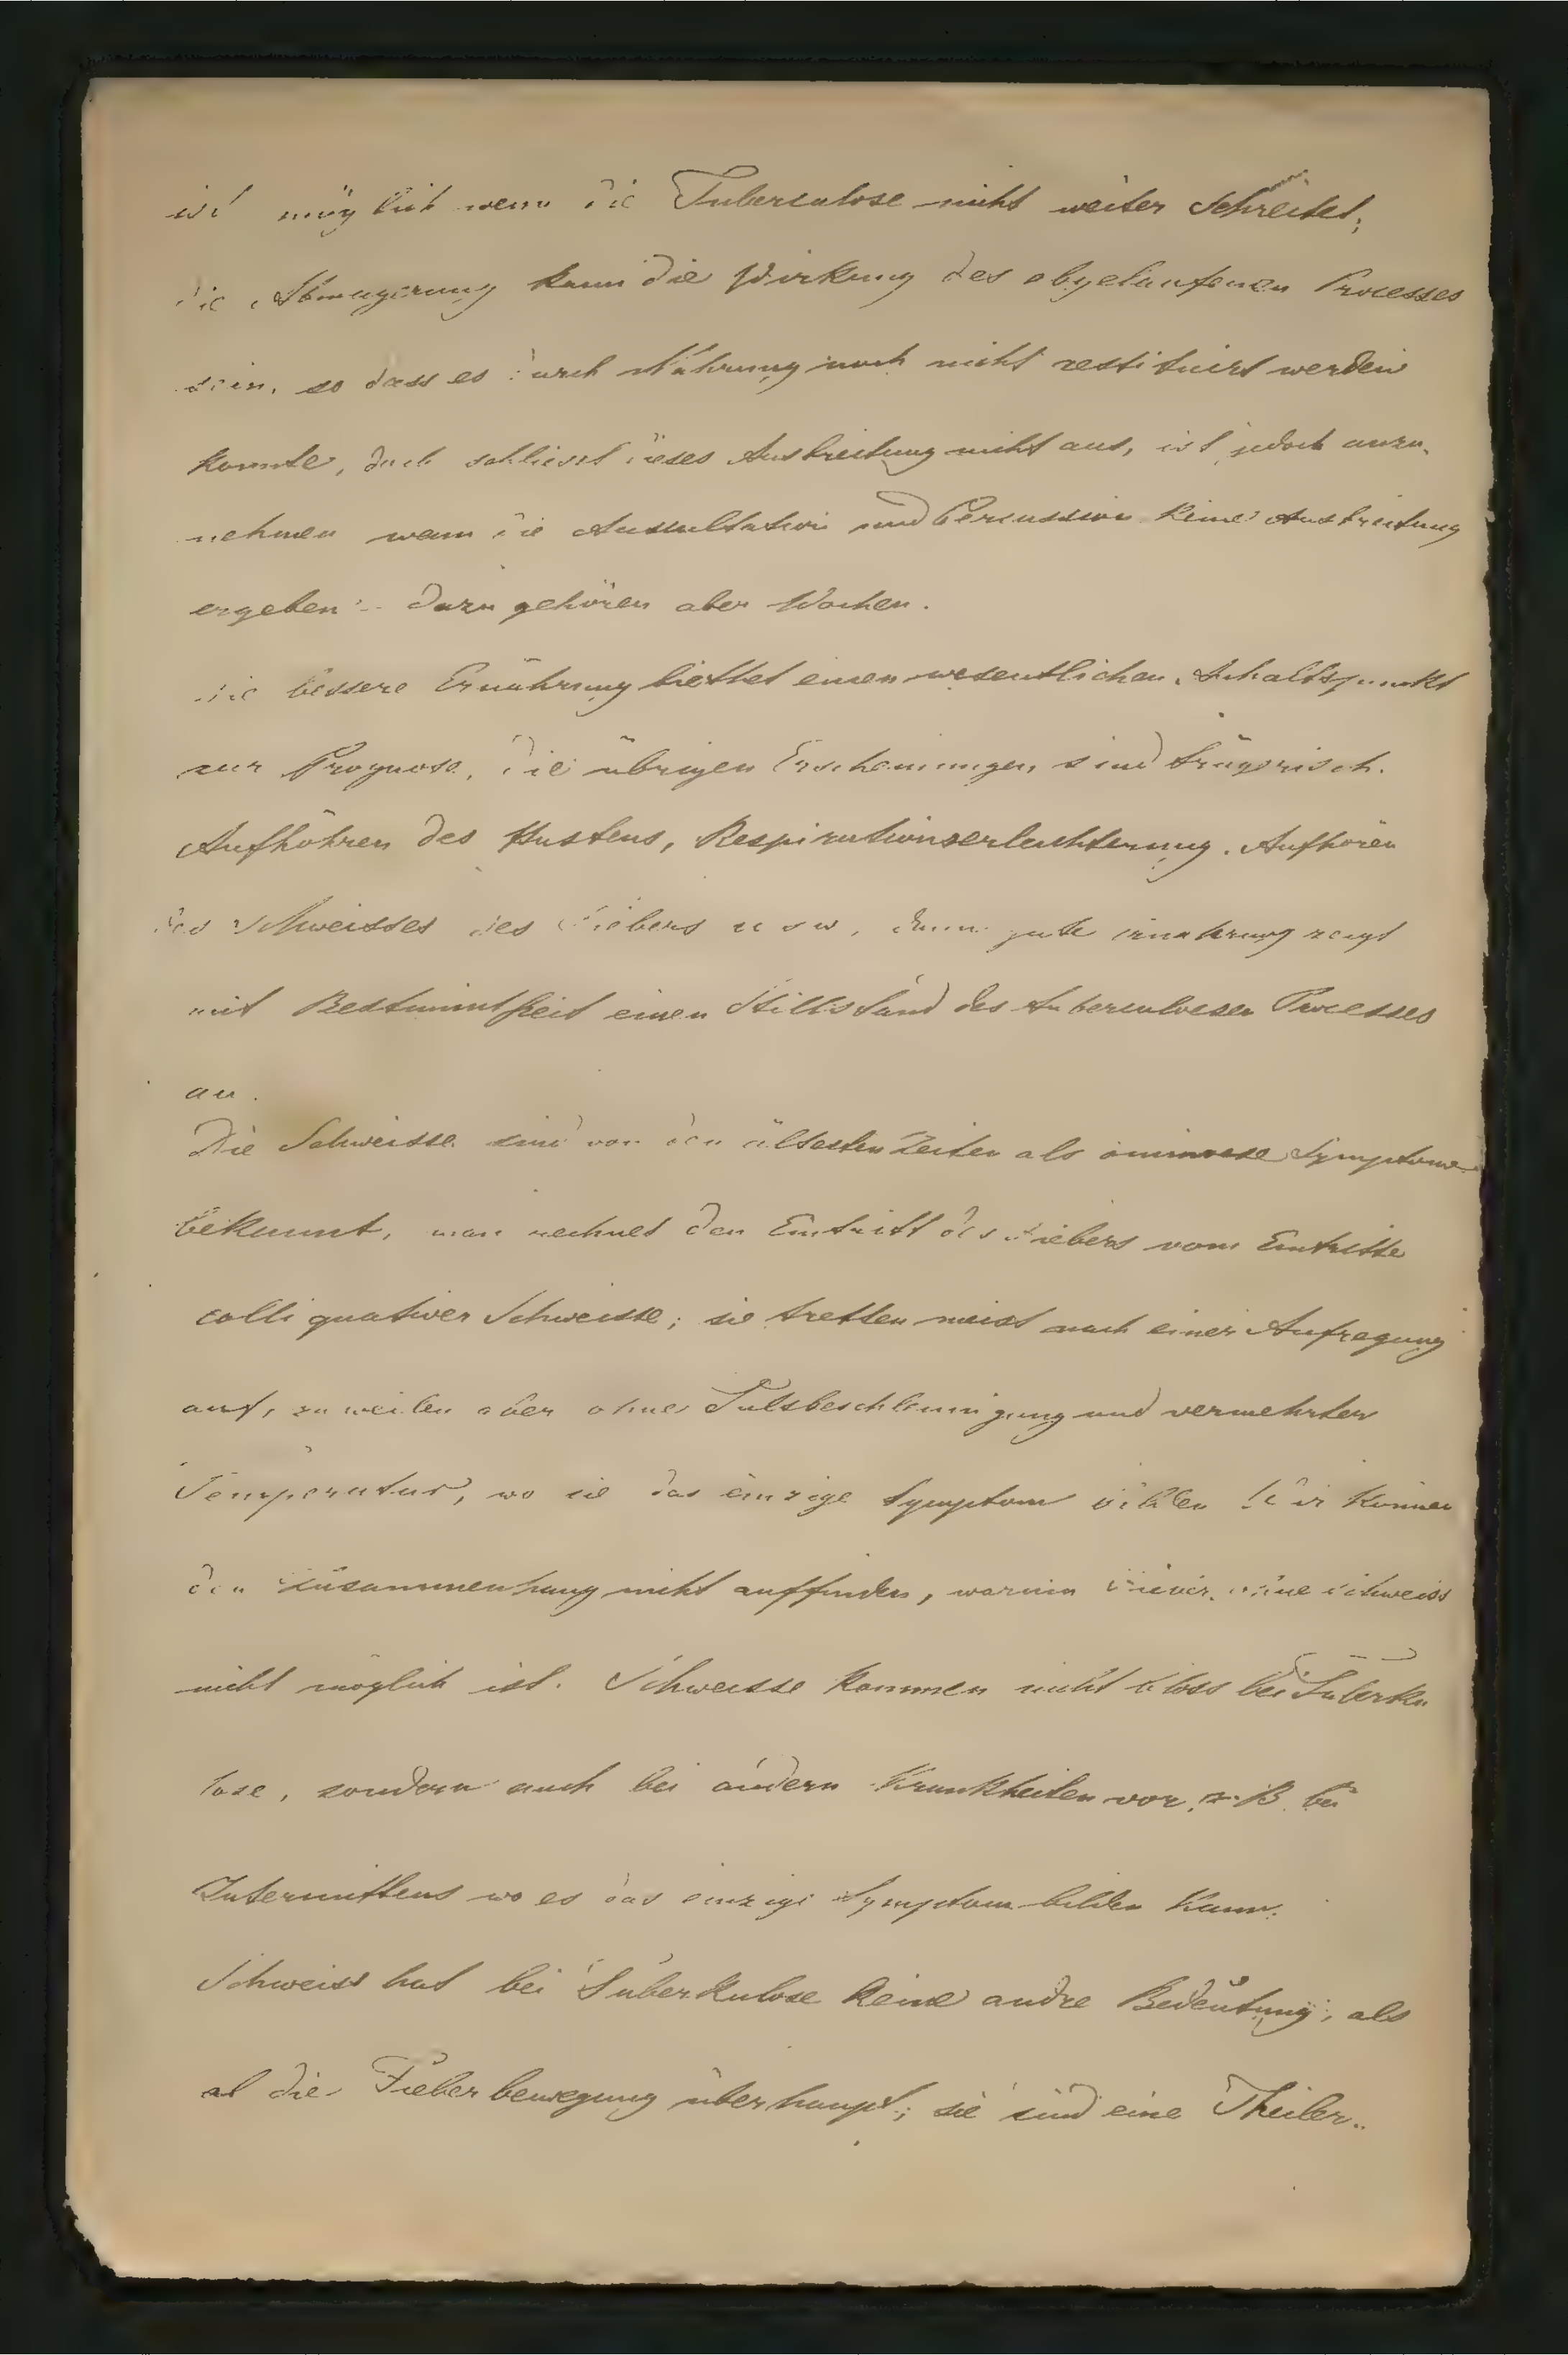 ist möglich wenn die Tuberculose nicht weiter schreitet;
die Abmagerung kann die Wirkung des abgelaufenen Processes
sein, so dass es durch Nahrung noch nicht restituirt werden
konnte, doch schliesst dieses Ausbreitung nicht aus, ist jedoch anzu-
nehmen wenn die Auscultation und Percussion keine Ausbreitung
ergeben - dazu gehören aber Wochen.
die bessere Ernährung biethet einen wesentlichen Anhaltspunkt
zur Prognose, die übrigen Erscheinungen sind trügerisch.
Aufhöhren des Hustens, Respirationserleichterung. Aufhören
des Schweisses des Fiebers u s w, denn gute ernahrung zeigt
mit Bestimmtheit einen Stillstand des tuberculosen Processes
an.
Die Schweisse sind von den ältesten Zeiten als ominose Symptome
bekannt, man rechnet den Eintritt des Fiebers vom Eintritte
colliquativer Schweisse; sie tretten meist nach einer Aufregung
auf, zuweilen aber ohne Pulsbeschleunigung und vermehrter
Temperatur, wo sie das einzige Symptom bilden Wir können
den Zusammenhang nicht auffinden, warum Fieber ohne Schweiss
nicht möglich ist. Schweisse kommen nicht bloss bei Tuberku
lose, sondern auch bei andern Krankheiten vor, z. B. bei
Intermittens wo es das einzige Symptom bilden kann.
Schweiss hat bei Tuberkulose keine andre Bedeutung, als
al die Fieberbewegung überhaupt; sie sind eine Theiler..